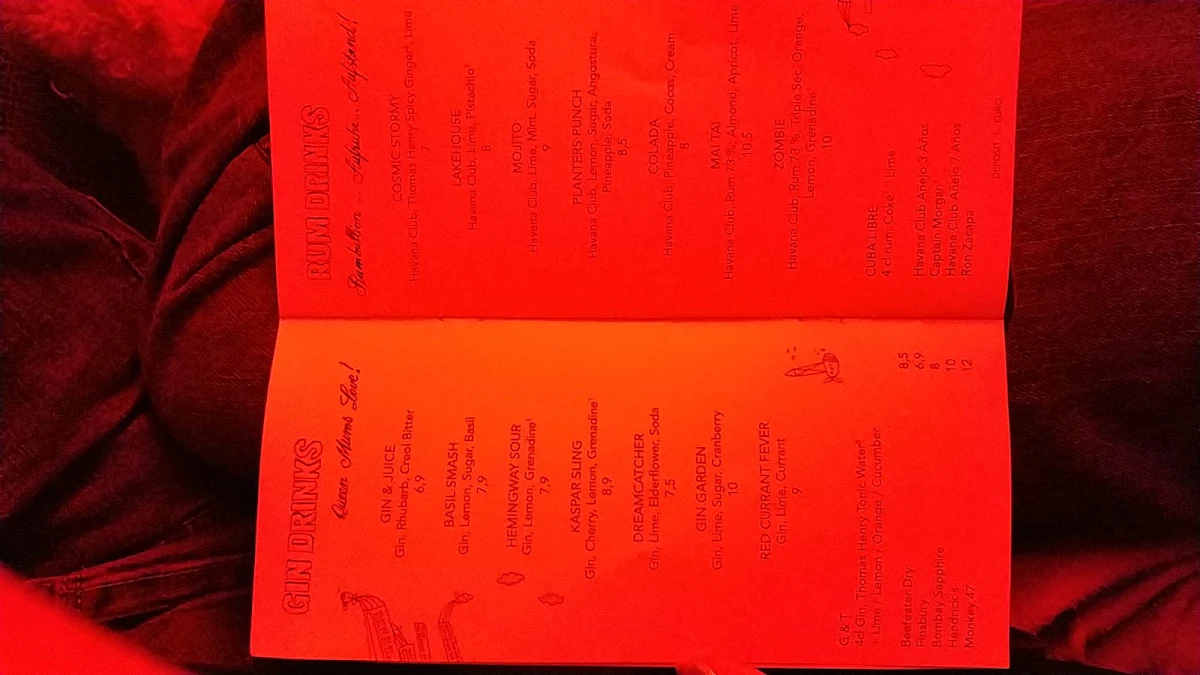 GIN DRINKS
Queen Mums Love!
GIN & JUICE
Gin, Rhubarb, Creol Bitter
6,9
BASIL SMASH
Gin, Lemon, Sugar, Basil
7,9
HEMINGWAY SOUR
Gin, Lemon, Grenadine¹
7,9
KASPAR SLING
Gin, Cherry, Lemon, Grenadine¹
8,9
DREAMCATCHER
Gin, Lime, Elderflower, Soda
7,5
GIN GARDEN
Gin, Lime, Sugar, Cranberry
10
RED CURRANT FEVER
Gin, Lime, Currant
9
G & T
4cl Gin, Thomas Henry Tonic Water
+ Lime / Lemon / Orange / Cucumber
Beefeater Dry 8,5
Finsbury 6,9
Bombay Sapphire 8
Hendrick's 10
Monkey 47 12
RUM DRINKS
Rambullion ... Aufruhr... Aufstand!
COSMIC STORMY
Havana Club, Thomas Henry Spicy Ginger, Lime
7
LAKEHOUSE
Havana Club, Lime, Pistachio¹
8
MOJITO
Havana Club, Lime, Mint, Sugar, Soda
9
PLANTERS PUNCH
Havana Club, Lemon, Sugar, Angostura,
Pineapple, Soda
8,5
COLADA
Havana Club, Pineapple, Cocos, Cream
8
MAITAI
Havana Club, Rum 73 %, Almond, Apricot, Lime
10,5
ZOMBIE
Havana Club, Rum 73 %, Triple Sec, Orange,
Lemon, Grenadine¹
10
CUBA LIBRE
4 cl rum, Coke, Lime
Havana Club Añejo 3 Años
Captain Morgan
Havana Club Añejo 7 Años
Ron Zacapa
DEPOSIT 1,- EURO